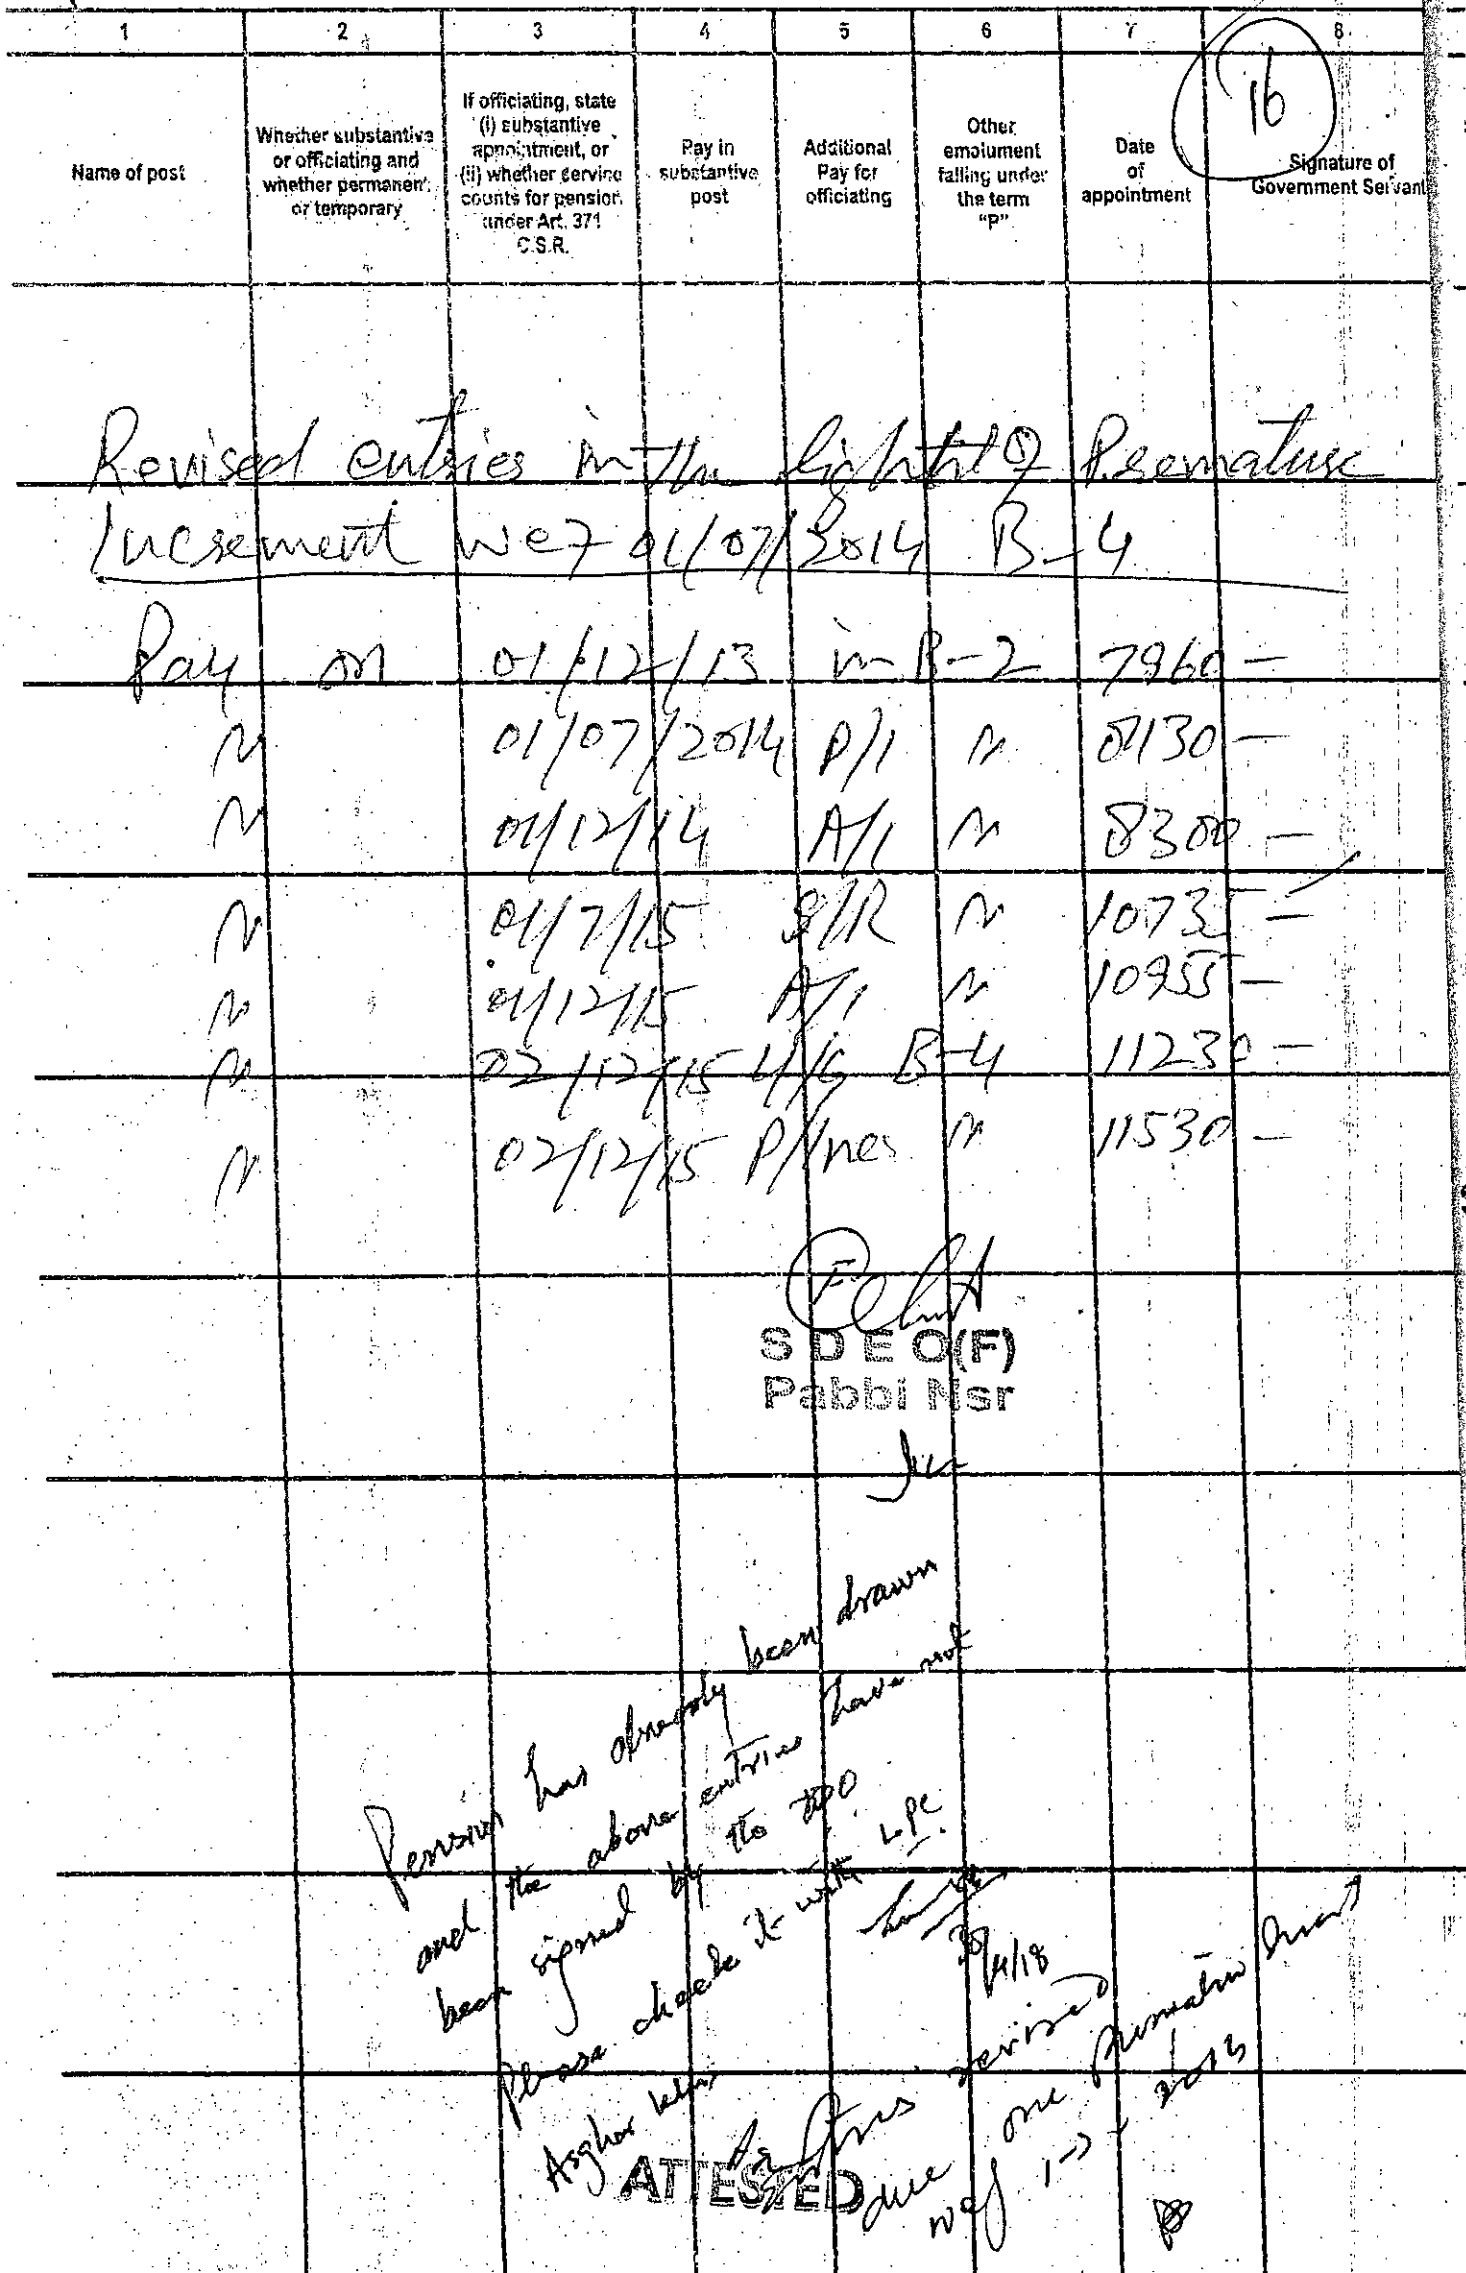 1 2 3 4 5 6 7 8
16
Name of post
Whether substantive or officiating and whether permanent or temporary
If officiating, state (i) substantive appointment, or (ii) whether service counts for pension under Art. 371 C.S.R.
Pay in substantive post
Additional Pay for officiating
Other emolument falling under the term "P"
Date of appointment
Signature of Government Servant
Revised entries in the light of Premature
Increment wef 01/07/2014 B-4
Pay on 01/12/13 in B-2 7960-
" 01/07/2014 P/I " 8130-
" 01/12/14 A/I " 8300-
" 01/7/15 S/R " 10735-
" 01/12/15 A/I " 10955-
" 02/12/15 U/G B-4 11230-
" 02/12/15 P/Incr " 11530-
S D E O(F)
Pabbi Nsr
Pension has already been drawn
and the above entries have not
been signed by the
Please check it with LPC
Asghar
30/4/18
revised
due one premature
wef 2013
ATTESTED